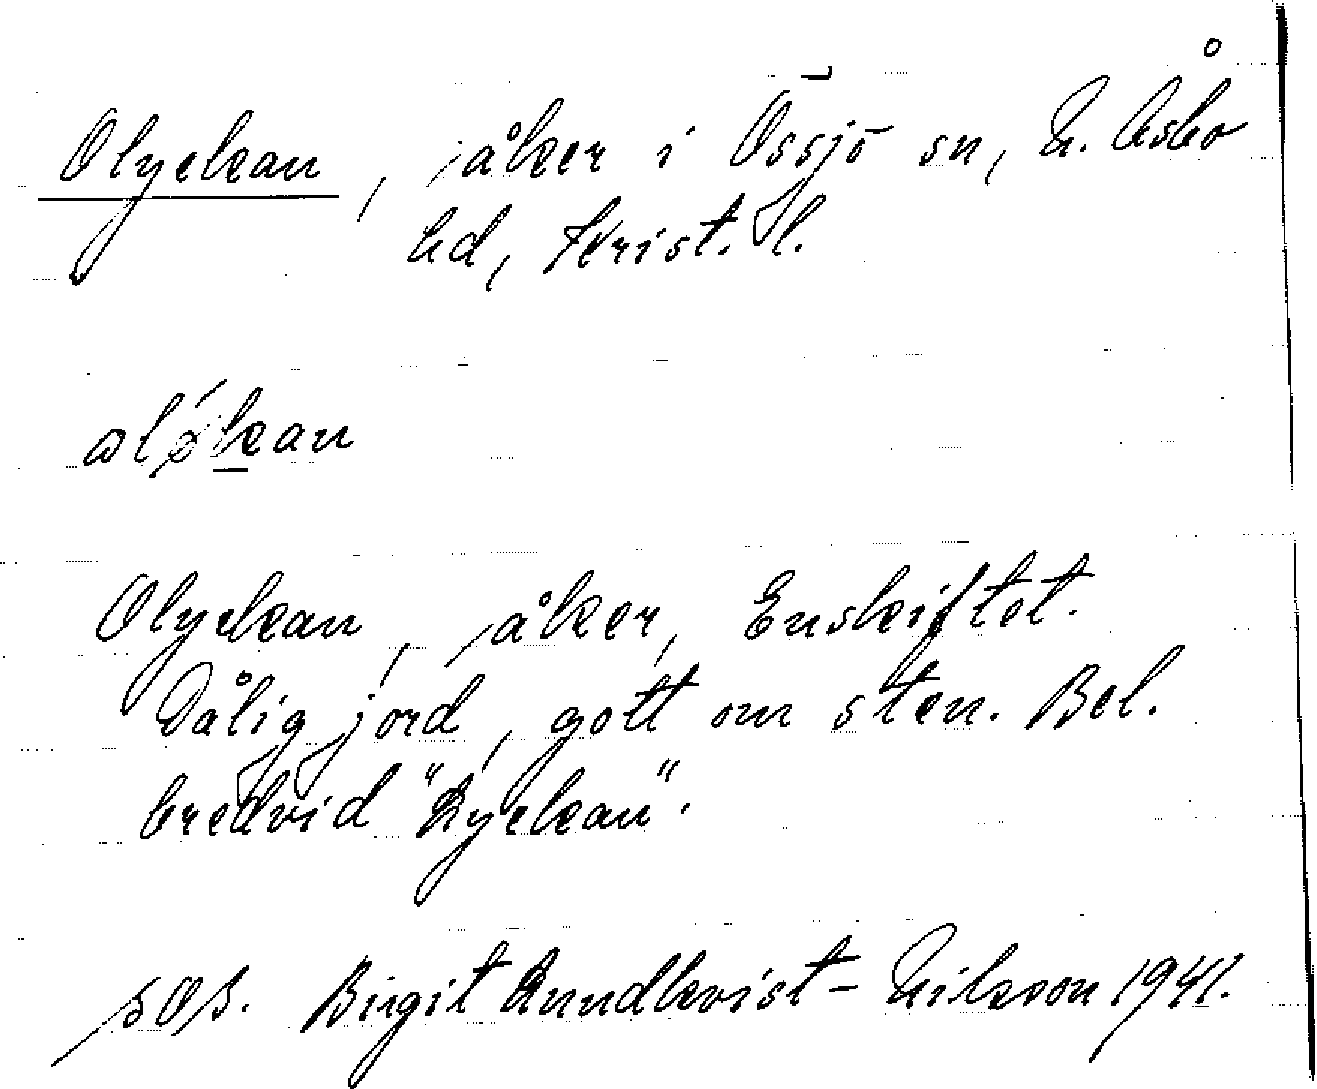 Olyckan, åker i Össjö sn, N. Åsbo
hd, Krist. l.
Olyckan, åker, Enskiftet.
Dålig jord, gott om sten. Bel.
bredvid "Lyckan".
SOS. Birgit Rundkvist-Nilsson 1941.